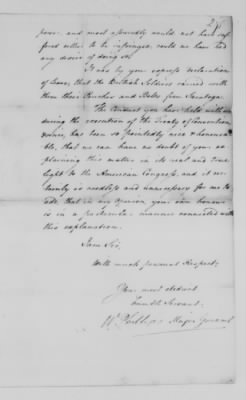 power, and most assuredly would not have suf
fered either to be infringed, could we have had
any desire of doing so.
It was by your express declaration
of leave, that the British Soldiers carried with
them their Pouches and Belts from Saratoga.
The Conduct you have held with us
during the execution of the Treaty of Convention
has been so pointedly nice & honora
ble, that we can have no doubt of your ex
plaining this matter in its real and true
light to the American Congress, and it cer
tainly is needless and unnecessary for me to
add, that in my opinion your own honour
is in a particular manner connected with
this explanation.
I am Sir,
With much personal Respect,
Your most obedient
humble Servant
W Phillips Major General